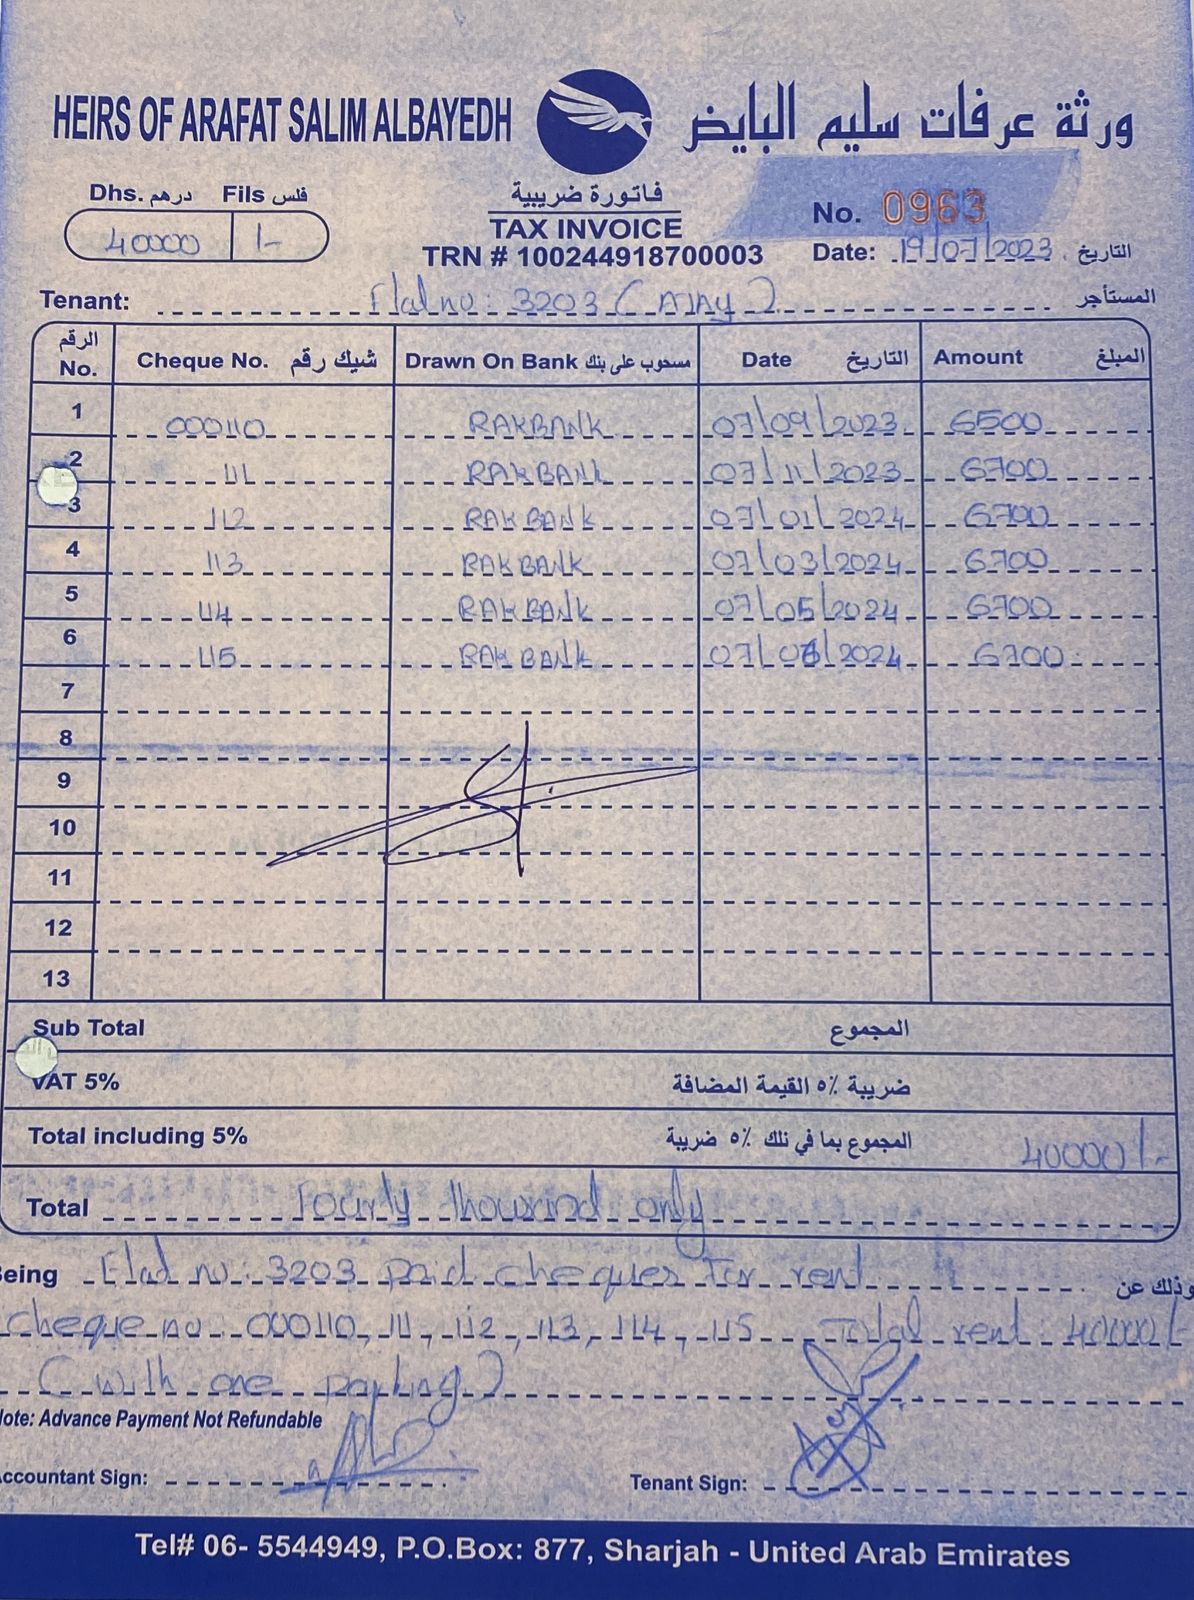 HEIRS OF ARAFAT SALIM ALBAYEDH ورثة عرفات سليم البايض
Dhs. درهم Fils فلس
40000 /-
فاتورة ضريبية
TAX INVOICE
TRN # 100244918700003
No. 0963
Date: 19/07/2023 التاريخ
Tenant: Flat no: 3203 (AJAY) المستأجر
الرقم No. Cheque No. شيك رقم Drawn On Bank مسحوب على بنك Date التاريخ Amount المبلغ
1 000110 RAKBANK 07/09/2023 6500
2 111 RAKBANK 07/11/2023 6700
3 112 RAKBANK 07/01/2024 6700
4 113 RAKBANK 07/03/2024 6700
5 114 RAKBANK 07/05/2024 6700
6 115 RAKBANK 07/ /2024 6700
7
8
9
10
11
12
13
Sub Total المجموع
VAT 5% ضريبة ٥٪ القيمة المضافة
Total including 5% المجموع بما في نلك ٥٪ ضريبة 40000/-
Total Fourty thousand only
Being Flat no: 3203 paid cheques for rent وذلك عن
cheque no: 000110, 111, 112, 113, 114, 115 Total rent: 40000/-
(with one parking)
Note: Advance Payment Not Refundable
Accountant Sign: Tenant Sign:
Tel# 06- 5544949, P.O.Box: 877, Sharjah - United Arab Emirates